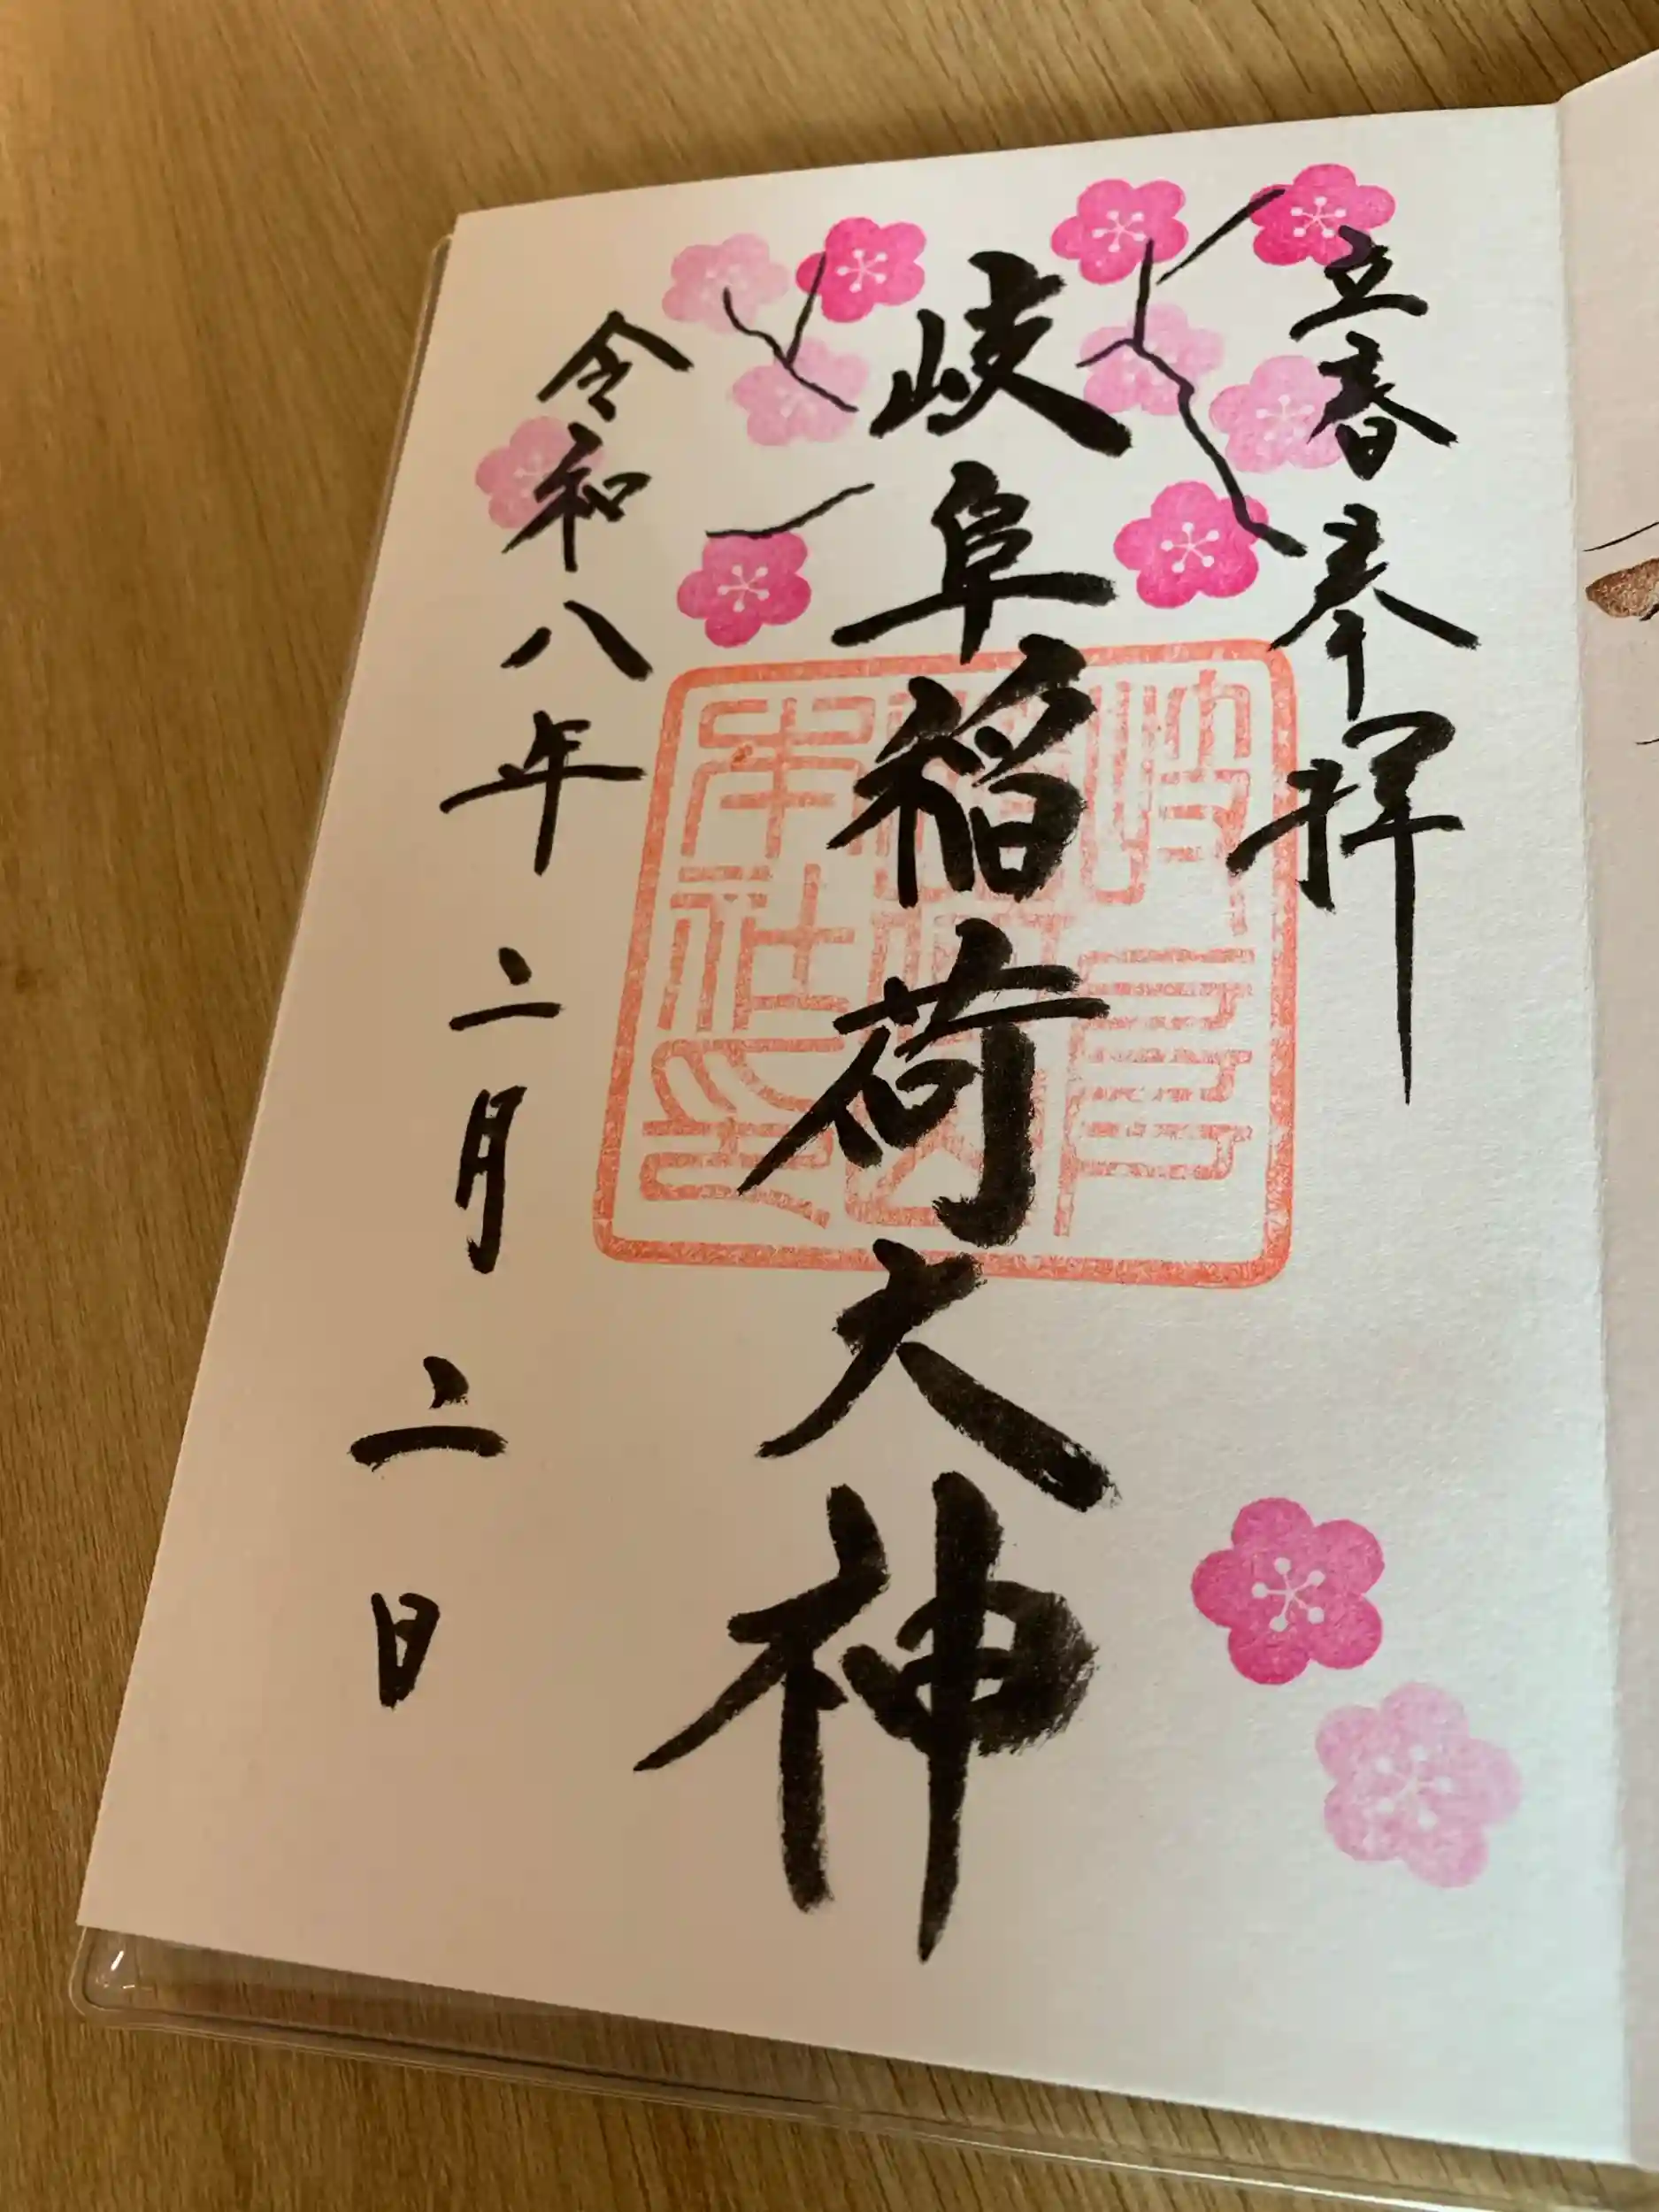 立春 奉拝
岐阜稲荷大神
岐阜稲荷本社之印
令和八年 二月 二日